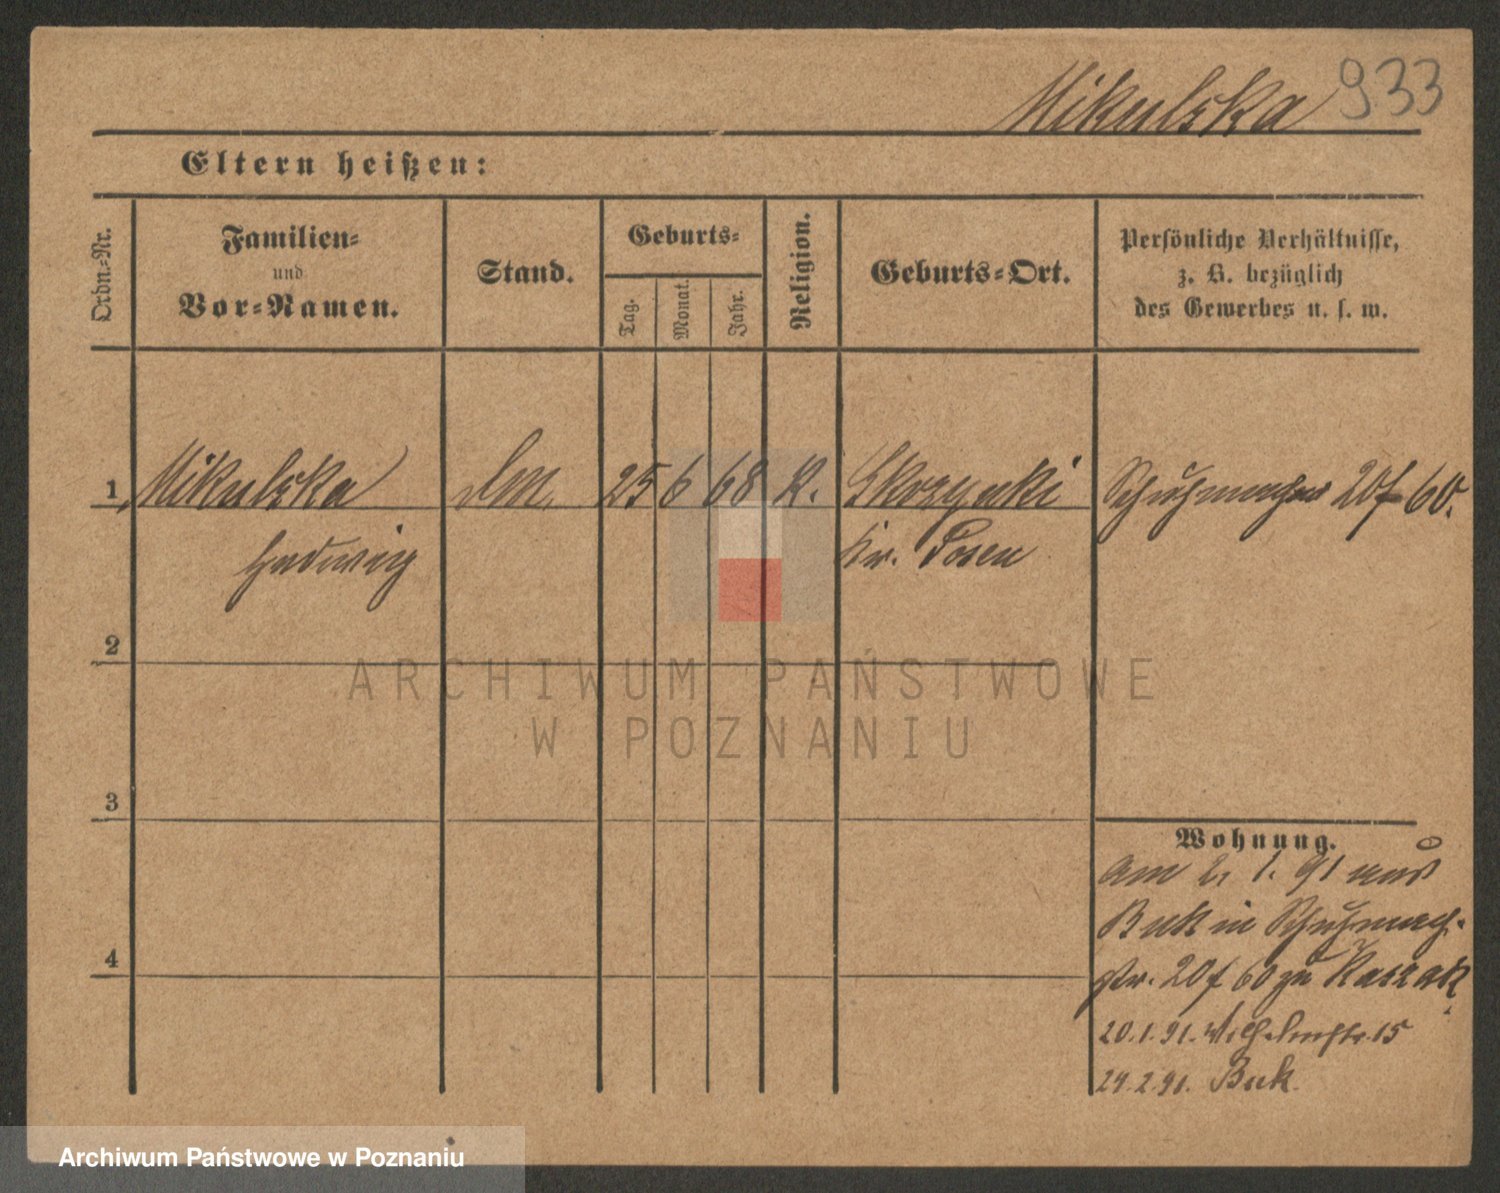 Mikulska 933
Eltern heißen:
Ordn.=Nr.
Familien=
und
Vor=Namen.
Stand.
Geburts=
Tag.
Monat.
Jahr.
Religion.
Geburts=Ort.
Persönliche Verhältnisse,
z. B. bezüglich
des Gewerbes u. s. w.
1 Mikulska 25 6 68 K. 20 60.
Hedwig Kr. Posen
2
3
4
Wohnung.
am 2. 1. 91 aus
Buk in Schuhmach-
str. 20 60 zu Kaszak
20.1.91. Wilhelmstr. 15
24.2.91. Buk.
ARCHIWUM PAŃSTWOWE
W POZNANIU
Archiwum Państwowe w Poznaniu